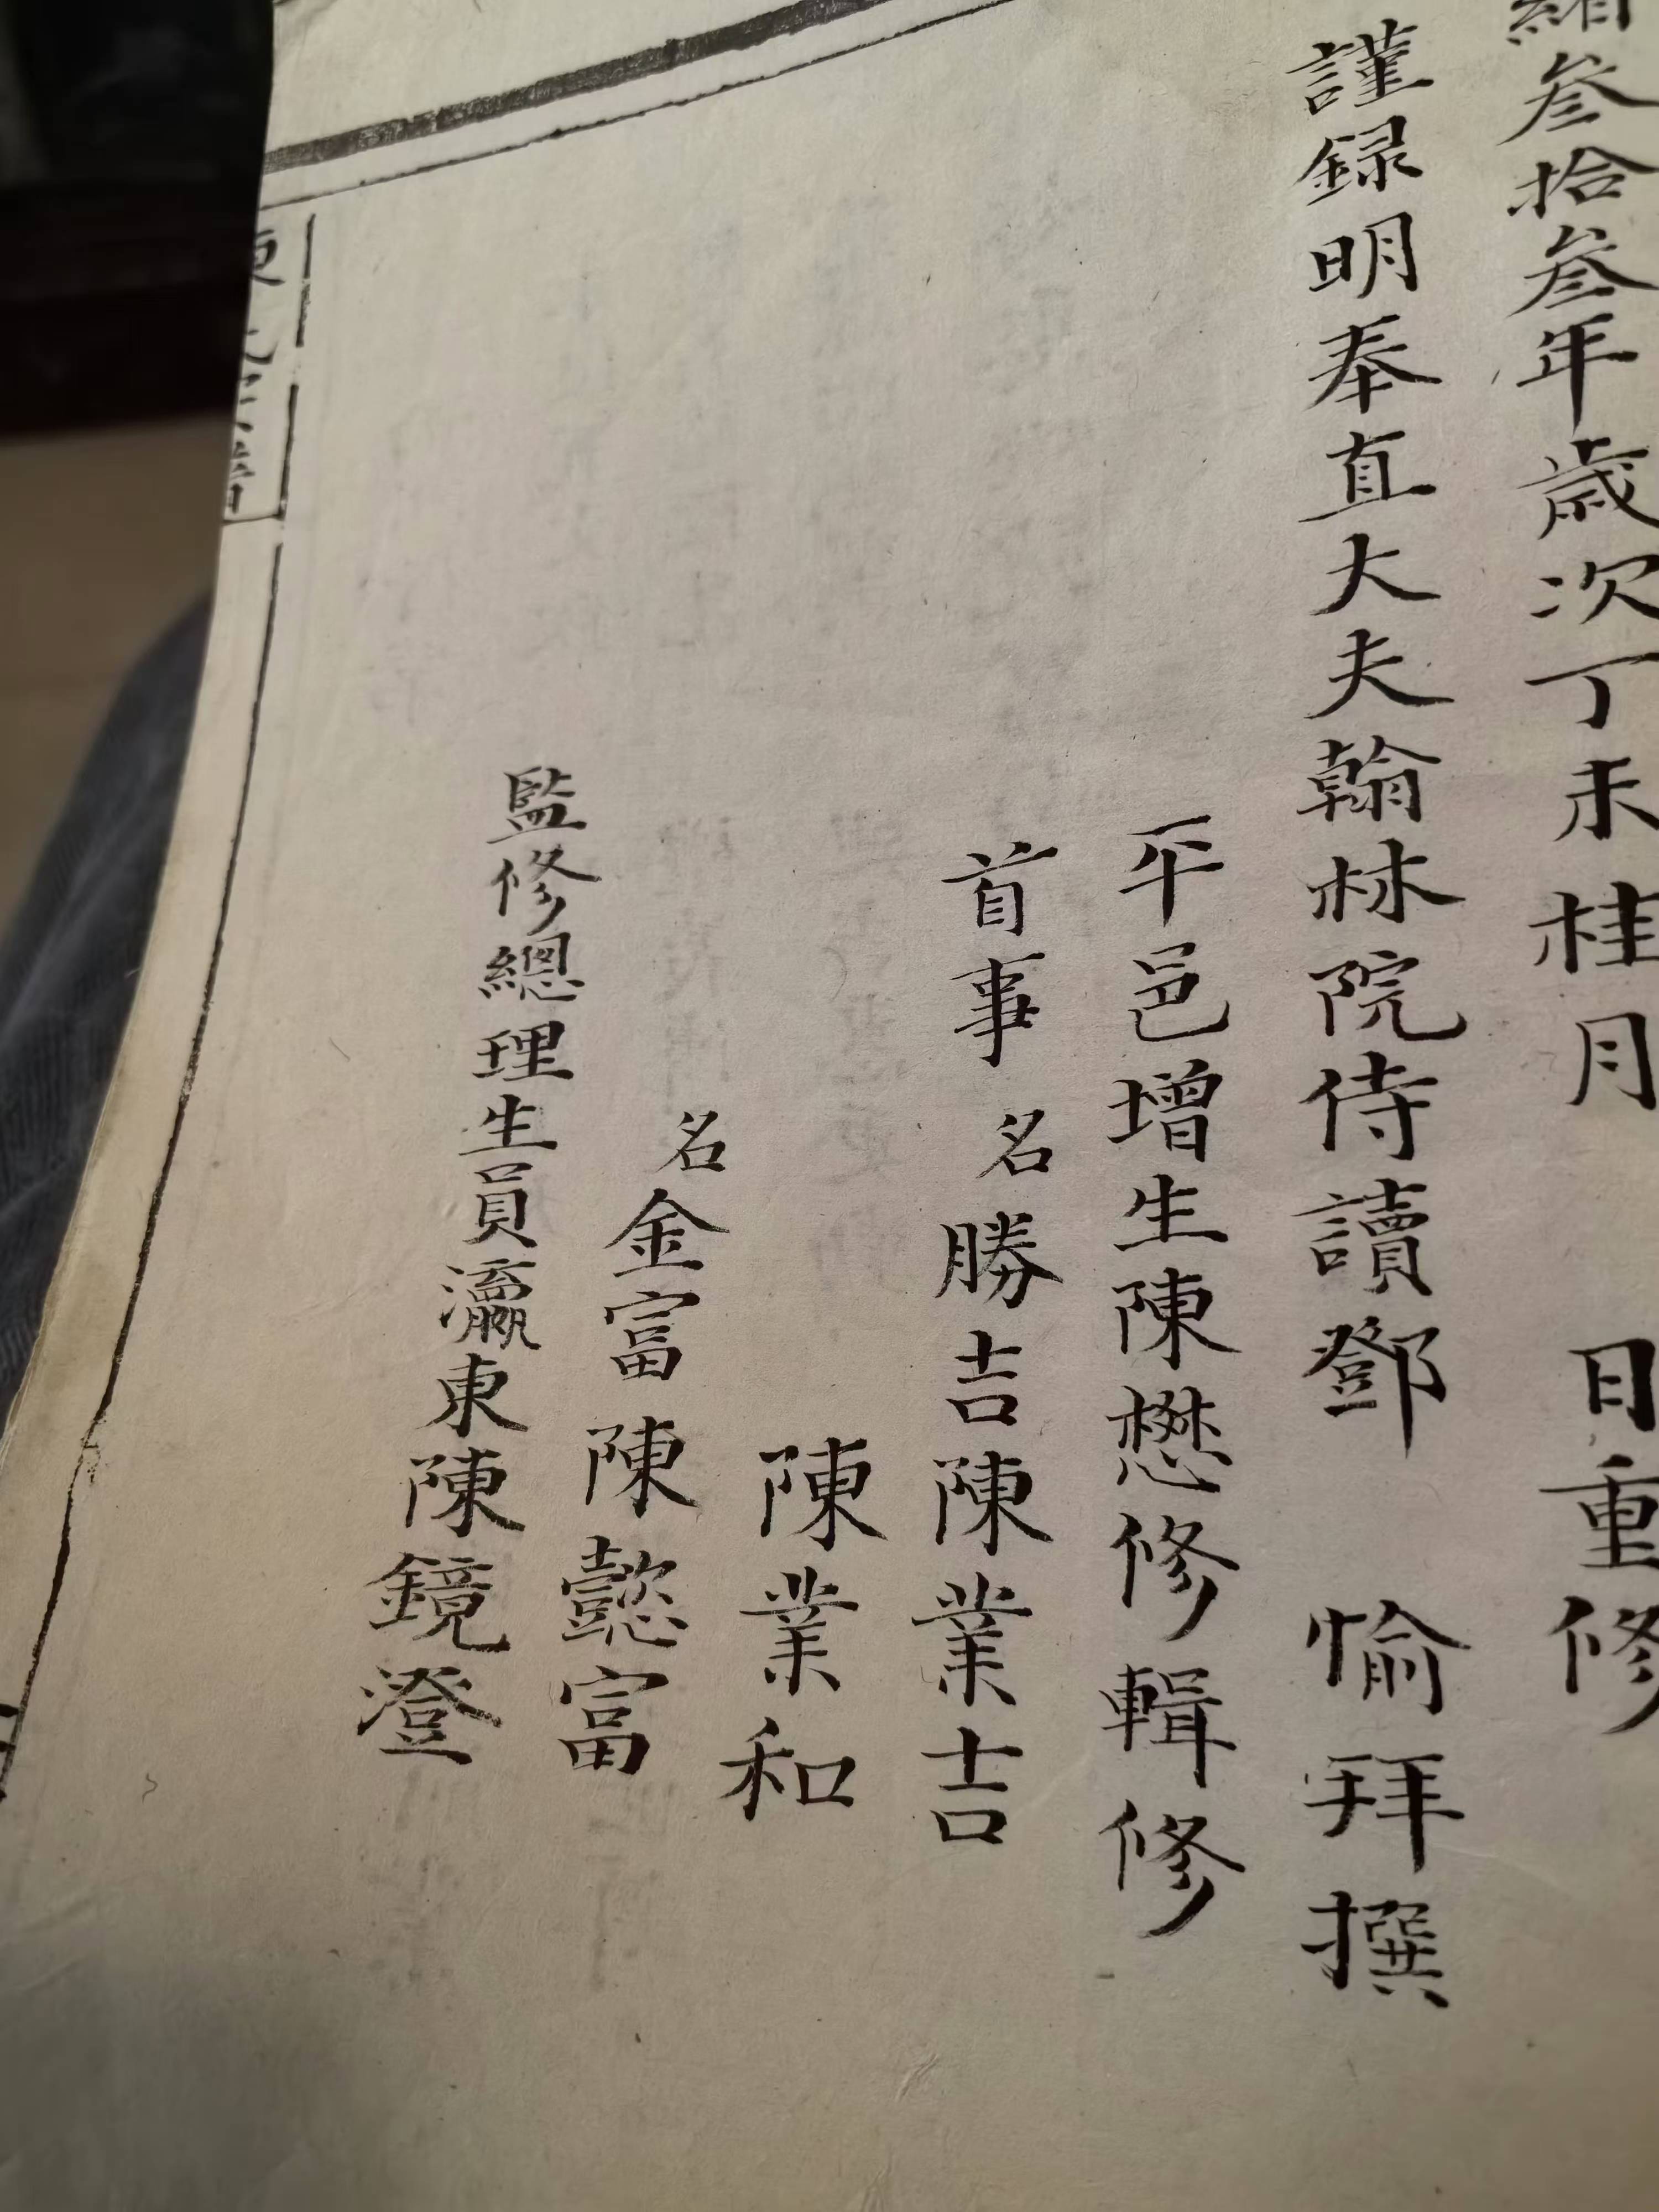 緒叁拾叁年歲次丁未桂月 日重修
謹録明奉直大夫翰林院侍讀鄧 愉拜撰
平邑增生陳懋修輯修
首事 名勝吉陳業吉
陳業和
名金富陳懿富
監修總理生員瀛東陳鏡澄